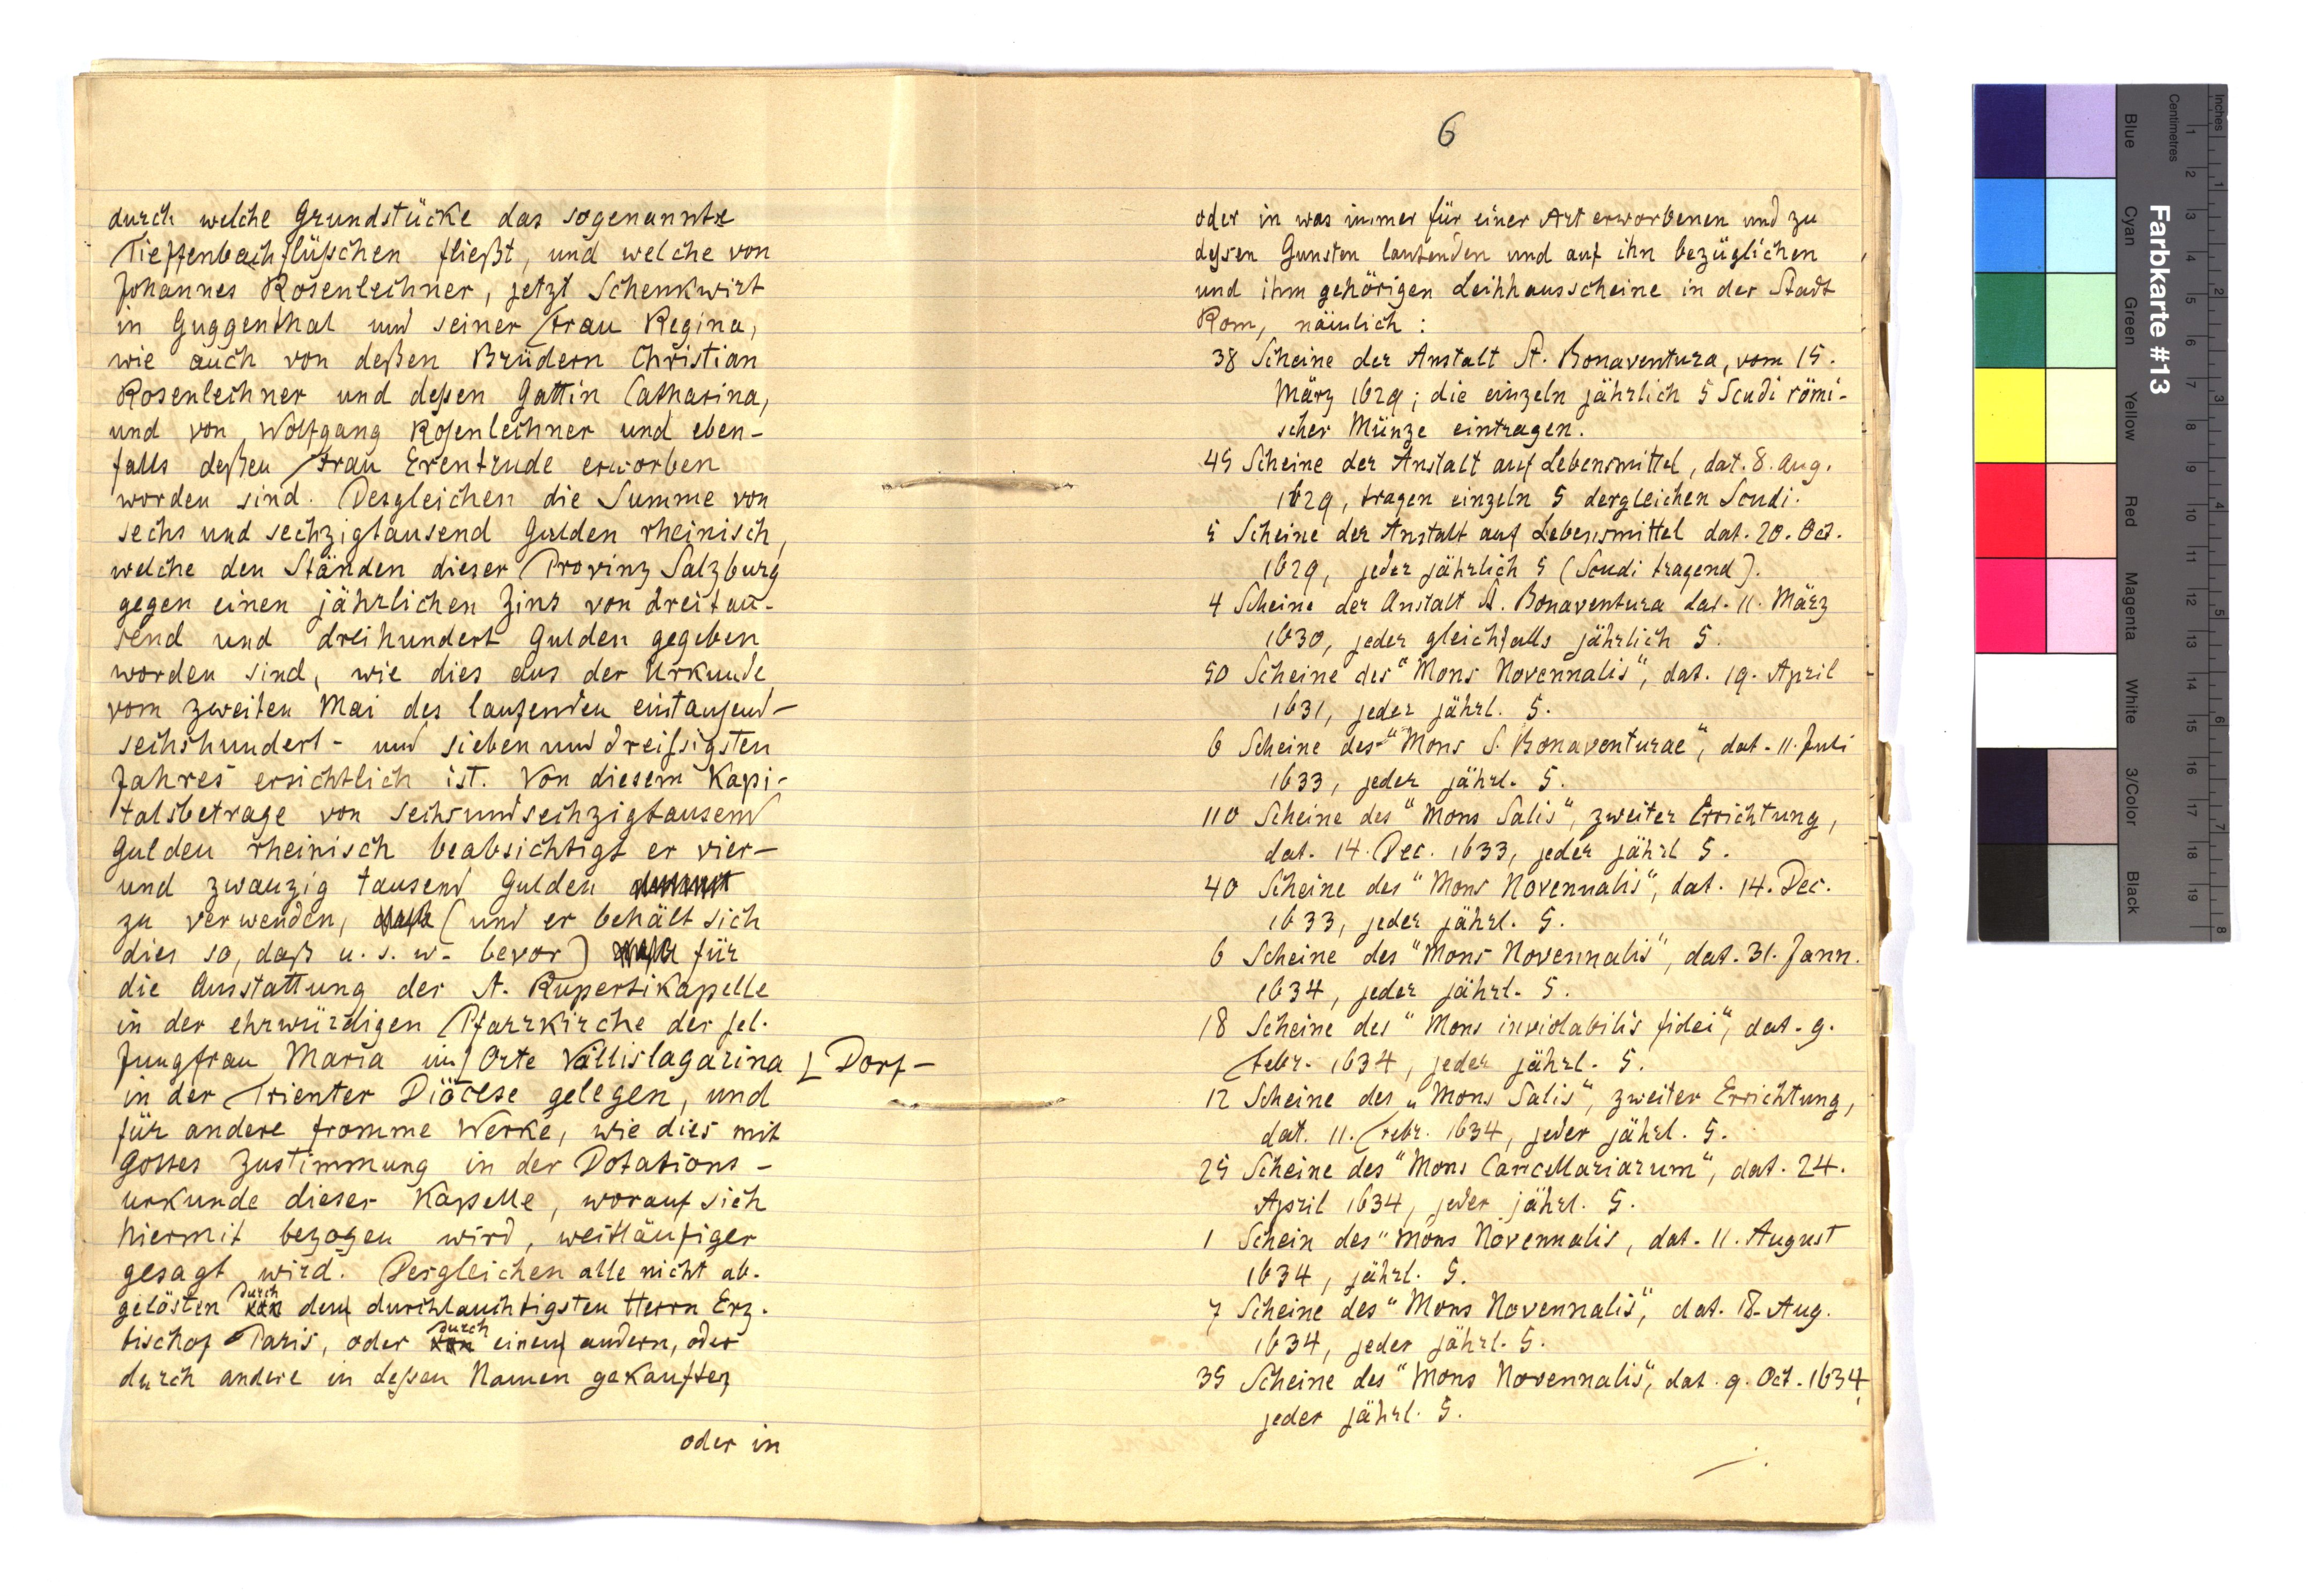 durch welche Grundstücke das sogenannte
Tieffenbachflüßchen fließt, und welche von
Johannes Rosenlechner, jetzt Schenkwirt
in Guggenthal und seiner Frau Regina,
wie auch von deßen Brüdern Christian
Rosenlechner und deßen Gattin Catharina,
und von Wolfgang Rosenlechner und eben-
falls deßen Frau Erentrude erworben
worden sind. Desgleichen die Summe von
sechs und sechzigtausend Gulden rheinisch,
welche den Ständen dieser Provinz Salzburg
gegen einen jährlichen Zins von dreitau-
send und dreihundert Gulden gegeben
worden sind, wie dies aus der Urkunde
vom zweiten Mai des laufenden eintausend-
sechshundert- und siebenunddreißigsten
Jahres ersichtlich ist. Von diesem Kapi-
talsbetrage von sechsundsechzigtausend
Gulden rheinisch beabsichtigt er vier-
und zwanzig tausend Gulden
zu verwenden, (und er behält sich
dies so, daß u. s. w. bevor) für
die Ausstattung der St. Rupertikapelle
in der ehrwürdigen Pfarrkirche der sel.
Jungfrau Maria im Orte Vallislagarina [Dorf-
in der Trienter Diöcese gelegen, und
für andere fromme Werke, wie dies mit
Gottes Zustimmung in der Dotations-
urkunde dieser Kapelle, worauf sich
hiermit bezogen wird, weitläufiger
gesagt wird. Desgleichen alle nicht ab-
gelösten von durch dem durchlauchtigsten Herrn Erz-
bischof Paris, oder von durch einem andern, oder
durch andere in deßen Namen gekauften
oder in
6
oder in was immer für einer Art erworbenen und zu
deßen Gunsten lautenden und auf ihn bezüglichen
und ihm gehörigen Leihhausscheine in der Stadt
Rom, nämlich:
38 Scheine der Anstalt St. Bonaventura, vom 15.
März 1629; die einzeln jährlich 5 Scudi römi-
scher Münze eintragen.
45 Scheine der Anstalt auf Lebensmittel, dat. 8. Aug.
1629, tragen einzeln 5 dergleichen Scudi.
5 Scheine der Anstalt auf Lebensmittel dat. 20. Oct.
1629, jeder jährlich 5 (Scudi tragend).
4 Scheine der Anstalt St. Bonaventura dat. 11. März
1630, jeder gleichfalls jährlich 5.
50 Scheine des "Mons Novennalis", dat. 19. April
1631, jeder jährl. 5.
6 Scheine des "Mons S. Bonaventurae", dat. 11. Juli
1633, jeder jährl. 5.
110 Scheine des "Mons Salis", zweiter Errichtung,
dat. 14. Dec. 1633, jeder jährl 5.
40 Scheine des "Mons Novennalis", dat. 14. Dec.
1633, jeder jährl. 5.
6 Scheine des "Mons Novennalis", dat. 31. Jann.
1634, jeder jährl. 5.
18 Scheine des "Mons inviolabilis fidei", dat. 9.
Febr. 1634, jeder jährl. 5.
12 Scheine des „Mons Salis", zweiter Errichtung,
dat. 11. Febr. 1634, jeder jährl. 5.
25 Scheine des "Mons Cancellariarum", dat. 24.
April 1634, jeder jährl. 5.
1 Schein des "Mons Novennalis, dat. 11. August
1634, jährl. 5.
7 Scheine des "Mons Novennalis", dat. 18. Aug.
1634, jeder jährl. 5.
35 Scheine des "Mons Novennalis", dat. 9. Oct. 1634,
jeder jährl. 5.
Farbkarte #13
Inches 1 2 3 4 5 6 7 8
Centimetres 1 2 3 4 5 6 7 8 9 10 11 12 13 14 15 16 17 18 19
Blue Cyan Green Yellow Red Magenta White 3/Color Black